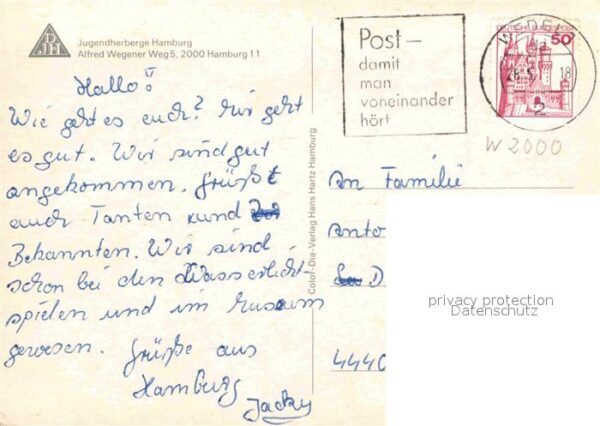 DJH
Jugendherberge Hamburg
Alfred Wegener Weg 5, 2000 Hamburg 11
Hallo!!
Wie geht es euch? Mir geht
es gut. Wir sind gut
angekommen. Grüßt
auch Tanten und
Bekannten. Wir sind
schon bei den Wasserlicht-
spielen und im Museum
gewesen. Grüße aus
Hamburg
Jacky
Color-Dia-Verlag Hans Hartz Hamburg
Post –
damit
man
voneinander
hört
WEDEL
28.5.
18
2
50
W 2000
An Familie
Anto
D
4440
privacy protection
Datenschutz